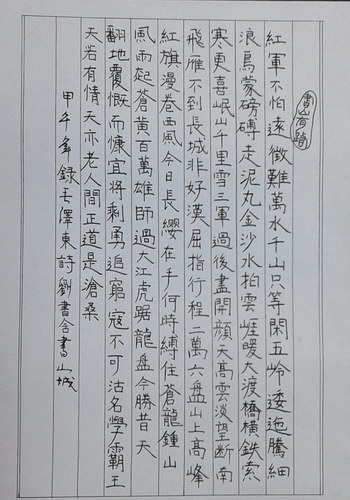 書山有路
紅軍不怕遠徵難萬水千山只等閑五岭逶迤騰細
浪烏蒙磅礴走泥丸金沙水拍雲崖暖大渡橋橫鉄索
寒更喜岷山千里雪三軍過後盡開顔天高雲淡望断南
飛雁不到長城非好漢屈指行程二萬六盤山上高峰
紅旗漫卷西風今日長纓在手何時縛住蒼龍鍾山
風雨起蒼黄百萬雄師過大江虎踞龍盤今勝昔天
翻地覆慨而慷宜將剩勇追窮寇不可沽名學霸王
天若有情天亦老人間正道是滄桑
甲午年錄毛澤東詩劉書含書山城